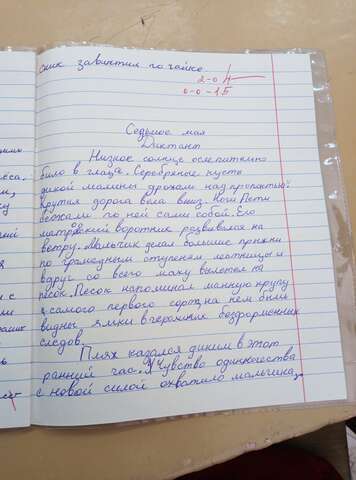 сник завинтил го гайко
2-0
0-0-1Б
Седьмое мая
Диктант
Низкое солнце ослепиткльно
било в глаза. Серебряные кусты
дикой малины дрожали над пропастью.
Крутая дорога вела вниз. Ноги Пети
бежали по ней сами собой. Его
матросский воротник развивался на
ветру. Мальчик делал большие прыжки
по громадным ступеням лестницы и
вдруг со всего маху вылетел на
песок. Песок напоминал манную крупу
самого первого сорта, на нём были
видны ямки вчерашних бесформенных
следов.
Пляж казался диким в этот
ранний час. Чувство одиночества
с новой силой охватило мальчика.